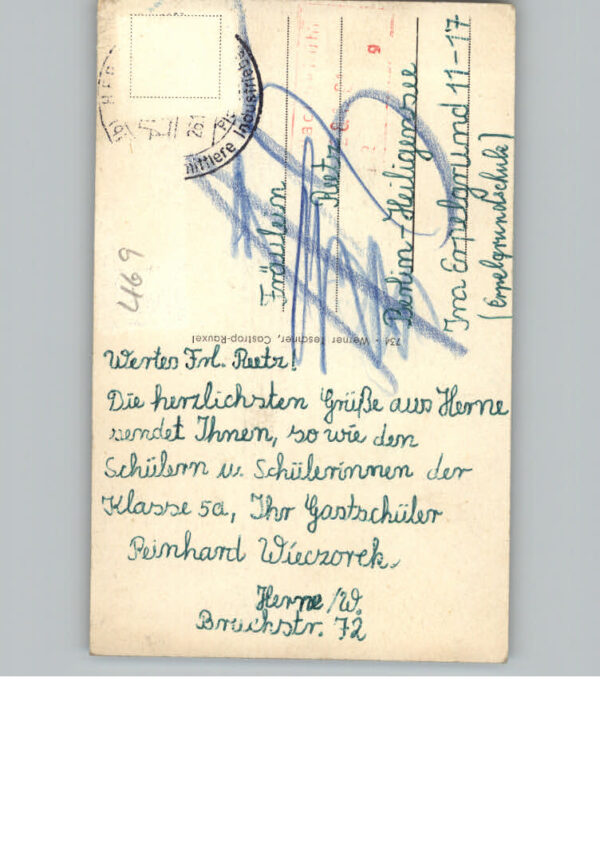 Wertes Frl. Reetz!
Die herzlichsten Grüße aus Herne
sendet Ihnen, so wie den
Schülern u. Schülerinnen der
Klasse 5a, Ihr Gastschüler
Reinhard Wieczorek.
Herne /W.
Bruchstr. 72
Fräulein
Reetz
Berlin-Heiligensee
Im Erpelgrund 11-17
(Erpelgrundschule)
734 - Werner Teschner, Castrop-Rauxel
469